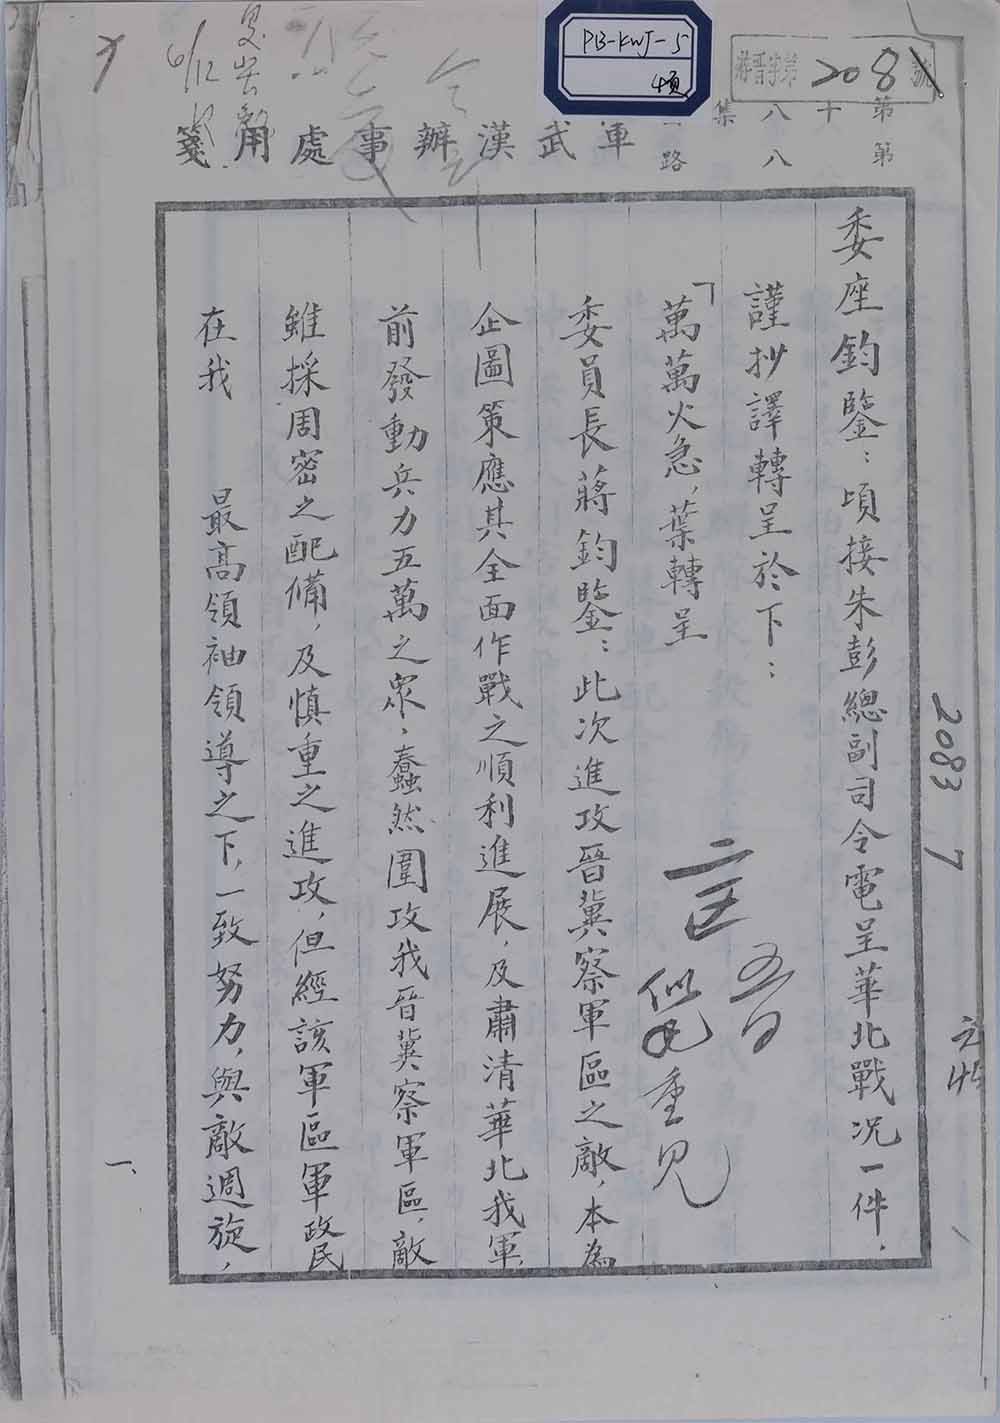 PB-KWJ-5
4页
208
第十八集
第八路
軍武漢辦事處用箋
6/12
委座鈞鑒：頃接朱彭總副司令電呈華北戰况一件，
謹抄譯轉呈於下：
「萬萬火急，葉轉呈
委員長蔣鈞鑒：此次進攻晉冀察軍區之敵，本為
企圖策應其全面作戰之順利進展，及肅清華北我軍，
前發動兵力五萬之眾，蠢然圍攻我晉冀察軍區，敵
雖採周密之配備，及慎重之進攻，但經該軍區軍政民
在我　最高領袖領導之下，一致努力，與敵週旋，
一、
2083 7